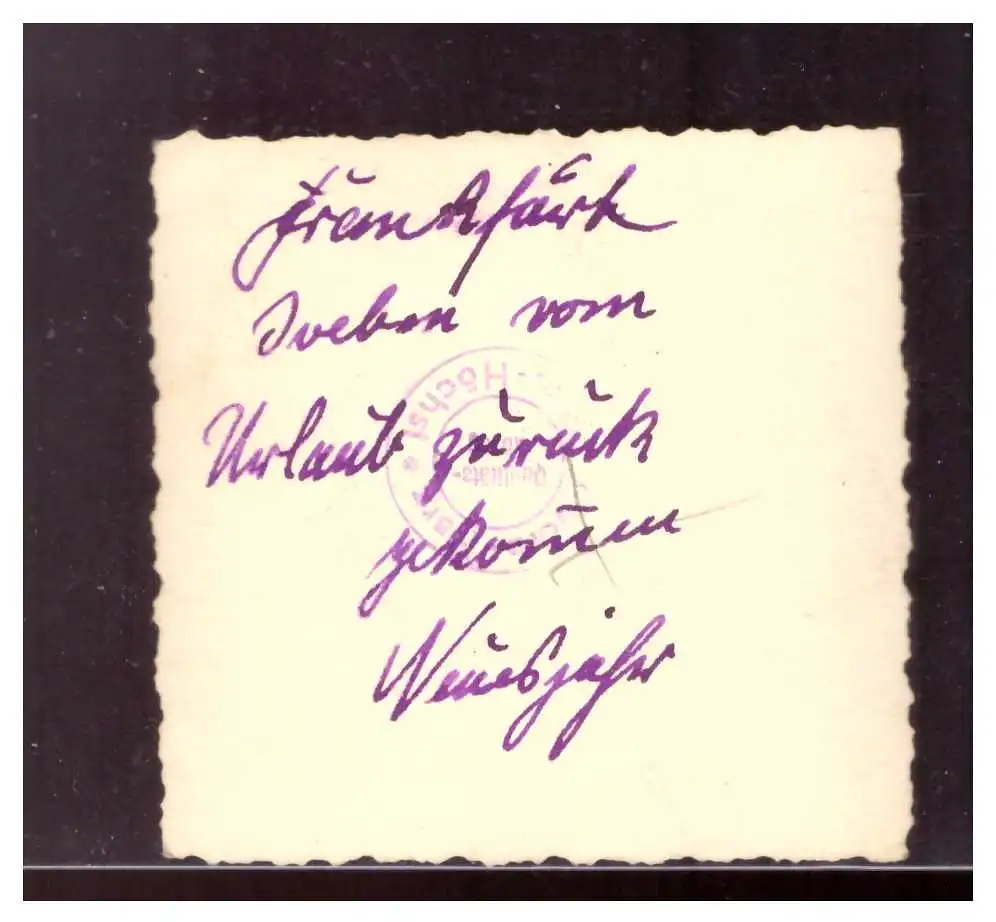 Frankfurt
Soeben vom
Urlaub zurück
gekommen
Neuesjahr
Höchst
Qualitäts-